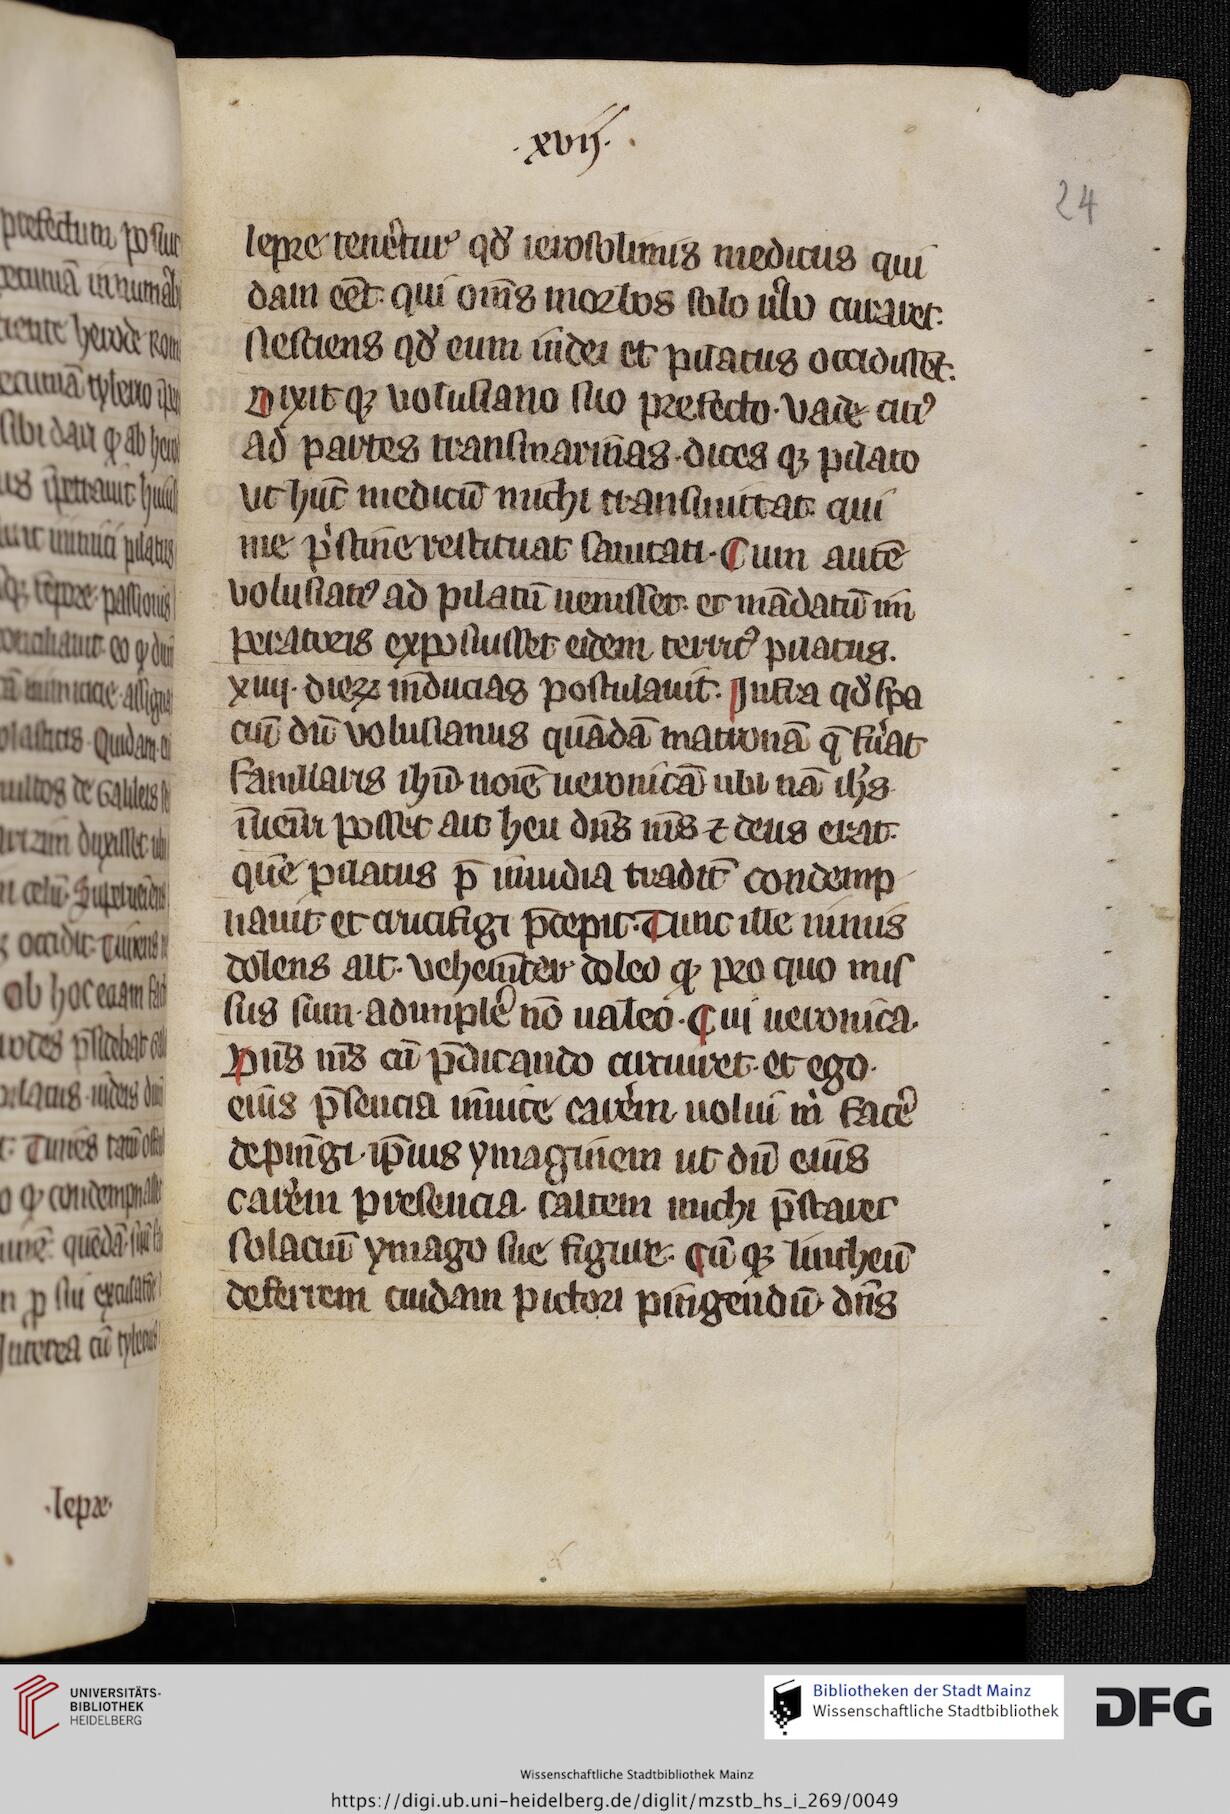 ·xvij·
24
lepre tenet̄ur qd̄ ierosolimis medicus qui
dam eēt· qui om̄s morbos solo ūbo curaret·
Nesciens qd̄ eum iudei et pilatus occidissēt·
Dixit qꝫ volusiano suo prefecto· vade citꝰ
ad partes transmarin̄as· dices qꝫ pilato
ut hūc medicū michi transmittat· qui
me p̓stine restituat sanitati· Cum autē
volusianꝰ ad pilatū uenisset· et mādatū im
peratoris exposuisset eidem territꝰ pilatus·
xiiij· dieꝝ inducias postulauit· Infra qd̄ spa
ciū dū volusianus quādā matronā q̄ fůat
familiaris ihū noīe ueronicā ubi nā ihs̄
īueīri posset ait heu dn̄s ms̄ ⁊ deus erat·
quē pilatus p̄ inuidia tradit̄ condemp
nauit et crucifigi p̄cepit· Tunc ille nimis
dolens ait· vehem̄ter doleo qꝫ pro quo mis
sus sum· adimplē nō ualeo· Cui ueronica·
Dn̄s ms̄ cū p̄dicando circuiret· et ego·
eius p̄sencia inuite carem̄ uolui m̓ facē
depingi· ip̄ius ymaginem ut dū eius
carem̄ presencia· saltem michi p̄staret
solaciū ymago sue figure· Cū qꝫ lintheū
deferrem cuidam pictori pingendū· dn̄s
·lepre·
UNIVERSITÄTS-
BIBLIOTHEK
HEIDELBERG
Bibliotheken der Stadt Mainz
Wissenschaftliche Stadtbibliothek
DFG
Wissenschaftliche Stadtbibliothek Mainz
https://digi.ub.uni-heidelberg.de/diglit/mzstb_hs_i_269/0049